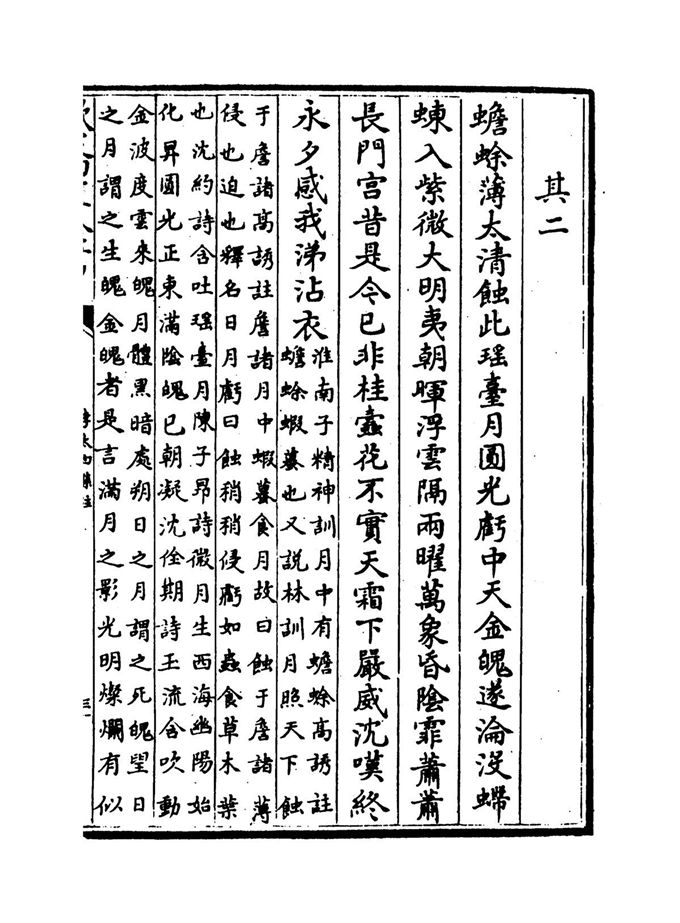 其二
蟾蜍薄太清蝕此瑶臺月圓光虧中天金魄遂淪没螮
蝀入紫微大明夷朝暉浮雲隔兩曜萬象昏陰霏蕭蕭
長門宫昔是今已非桂蠹花不實天霜下嚴威沈嘆終
永夕感我涕沾衣
淮南子精神訓月中有蟾蜍高誘註
蟾蜍蝦蟇也又説林訓月照天下蝕
于詹諸高誘註詹諸月中蝦蟇食月故曰蝕于詹諸薄
侵也迫也釋名日月虧曰蝕稍稍侵虧如蟲食草木葉
也沈約詩含吐瑶臺月陳子昂詩微月生西海幽陽始
化昇圓光正東滿陰魄已朝凝沈佺期詩玉流含吹動
金波度雲來魄月體黑暗處朔日之月謂之死魄望日
之月謂之生魄金魄者是言滿月之影光明燦爛有似
李太白集注